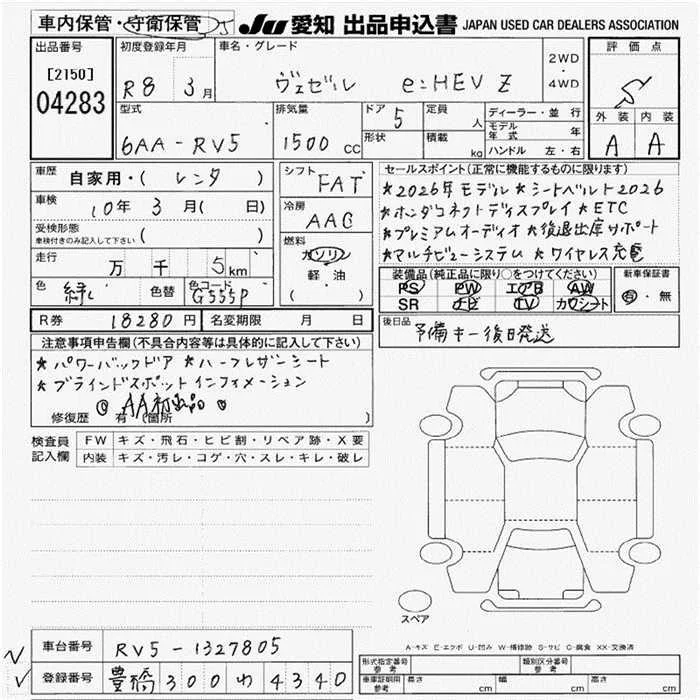 車内保管・守衛保管
JU 愛知 出品申込書 JAPAN USED CAR DEALERS ASSOCIATION
出品番号 [2150] 04283
初度登録年月 R8 3月
車名・グレード ヴェゼル e:HEV Z
2WD・4WD
評価点 S
外装 A 内装 A
型式 6AA-RV5
排気量 1500 CC
ドア 5
形状
定員 人
積載 kg
ディーラー・並行
モデル年式 年
ハンドル 左・右
車歴 自家用・( レンタ )
車検 10年 3月( 日)
受検形態 車検付きのみ記入して下さい ( )
走行 万 千 5km
色 緑 色替 色コード G555P
シフト FAT
冷房 AAC
燃料 ガソリン 軽油 ・( )
セールスポイント(正常に機能するものに限ります)
*2026年モデル*シートベルト2026
*ホンダコネクトディスプレイ*ETC
*プレミアムオーディオ*後退出庫サポート
*マルチビューシステム *ワイヤレス充電
装備品(純正品に限り○をつけてください)
PS PW エアB AW
SR ナビ TV カワシート
新車保証書 有・無
R券 18280円 名変期限 月 日
後日品 予備キー後日発送
注意事項申告欄(不具合内容等は具体的に記入して下さい)
*パワーバックドア *ハーフレザーシート
*ブラインドスポットインフォメーション
◎AA初出品◎
修復歴 有(箇所 )
検査員記入欄
FW キズ・飛石・ヒビ割・リペア跡・X要
内装 キズ・汚レ・コゲ・穴・スレ・キレ・破レ
スペア
A-キズ E-エクボ U-凹み W-補修跡 S-サビ C-腐食 XX-交換済
車台番号 RV5-1327805
登録番号 豊橋 300 わ 4340
形式指定番号 参考
類別区分番号 参考
車車証明用 参考 長さ cm 幅 cm 高さ cm